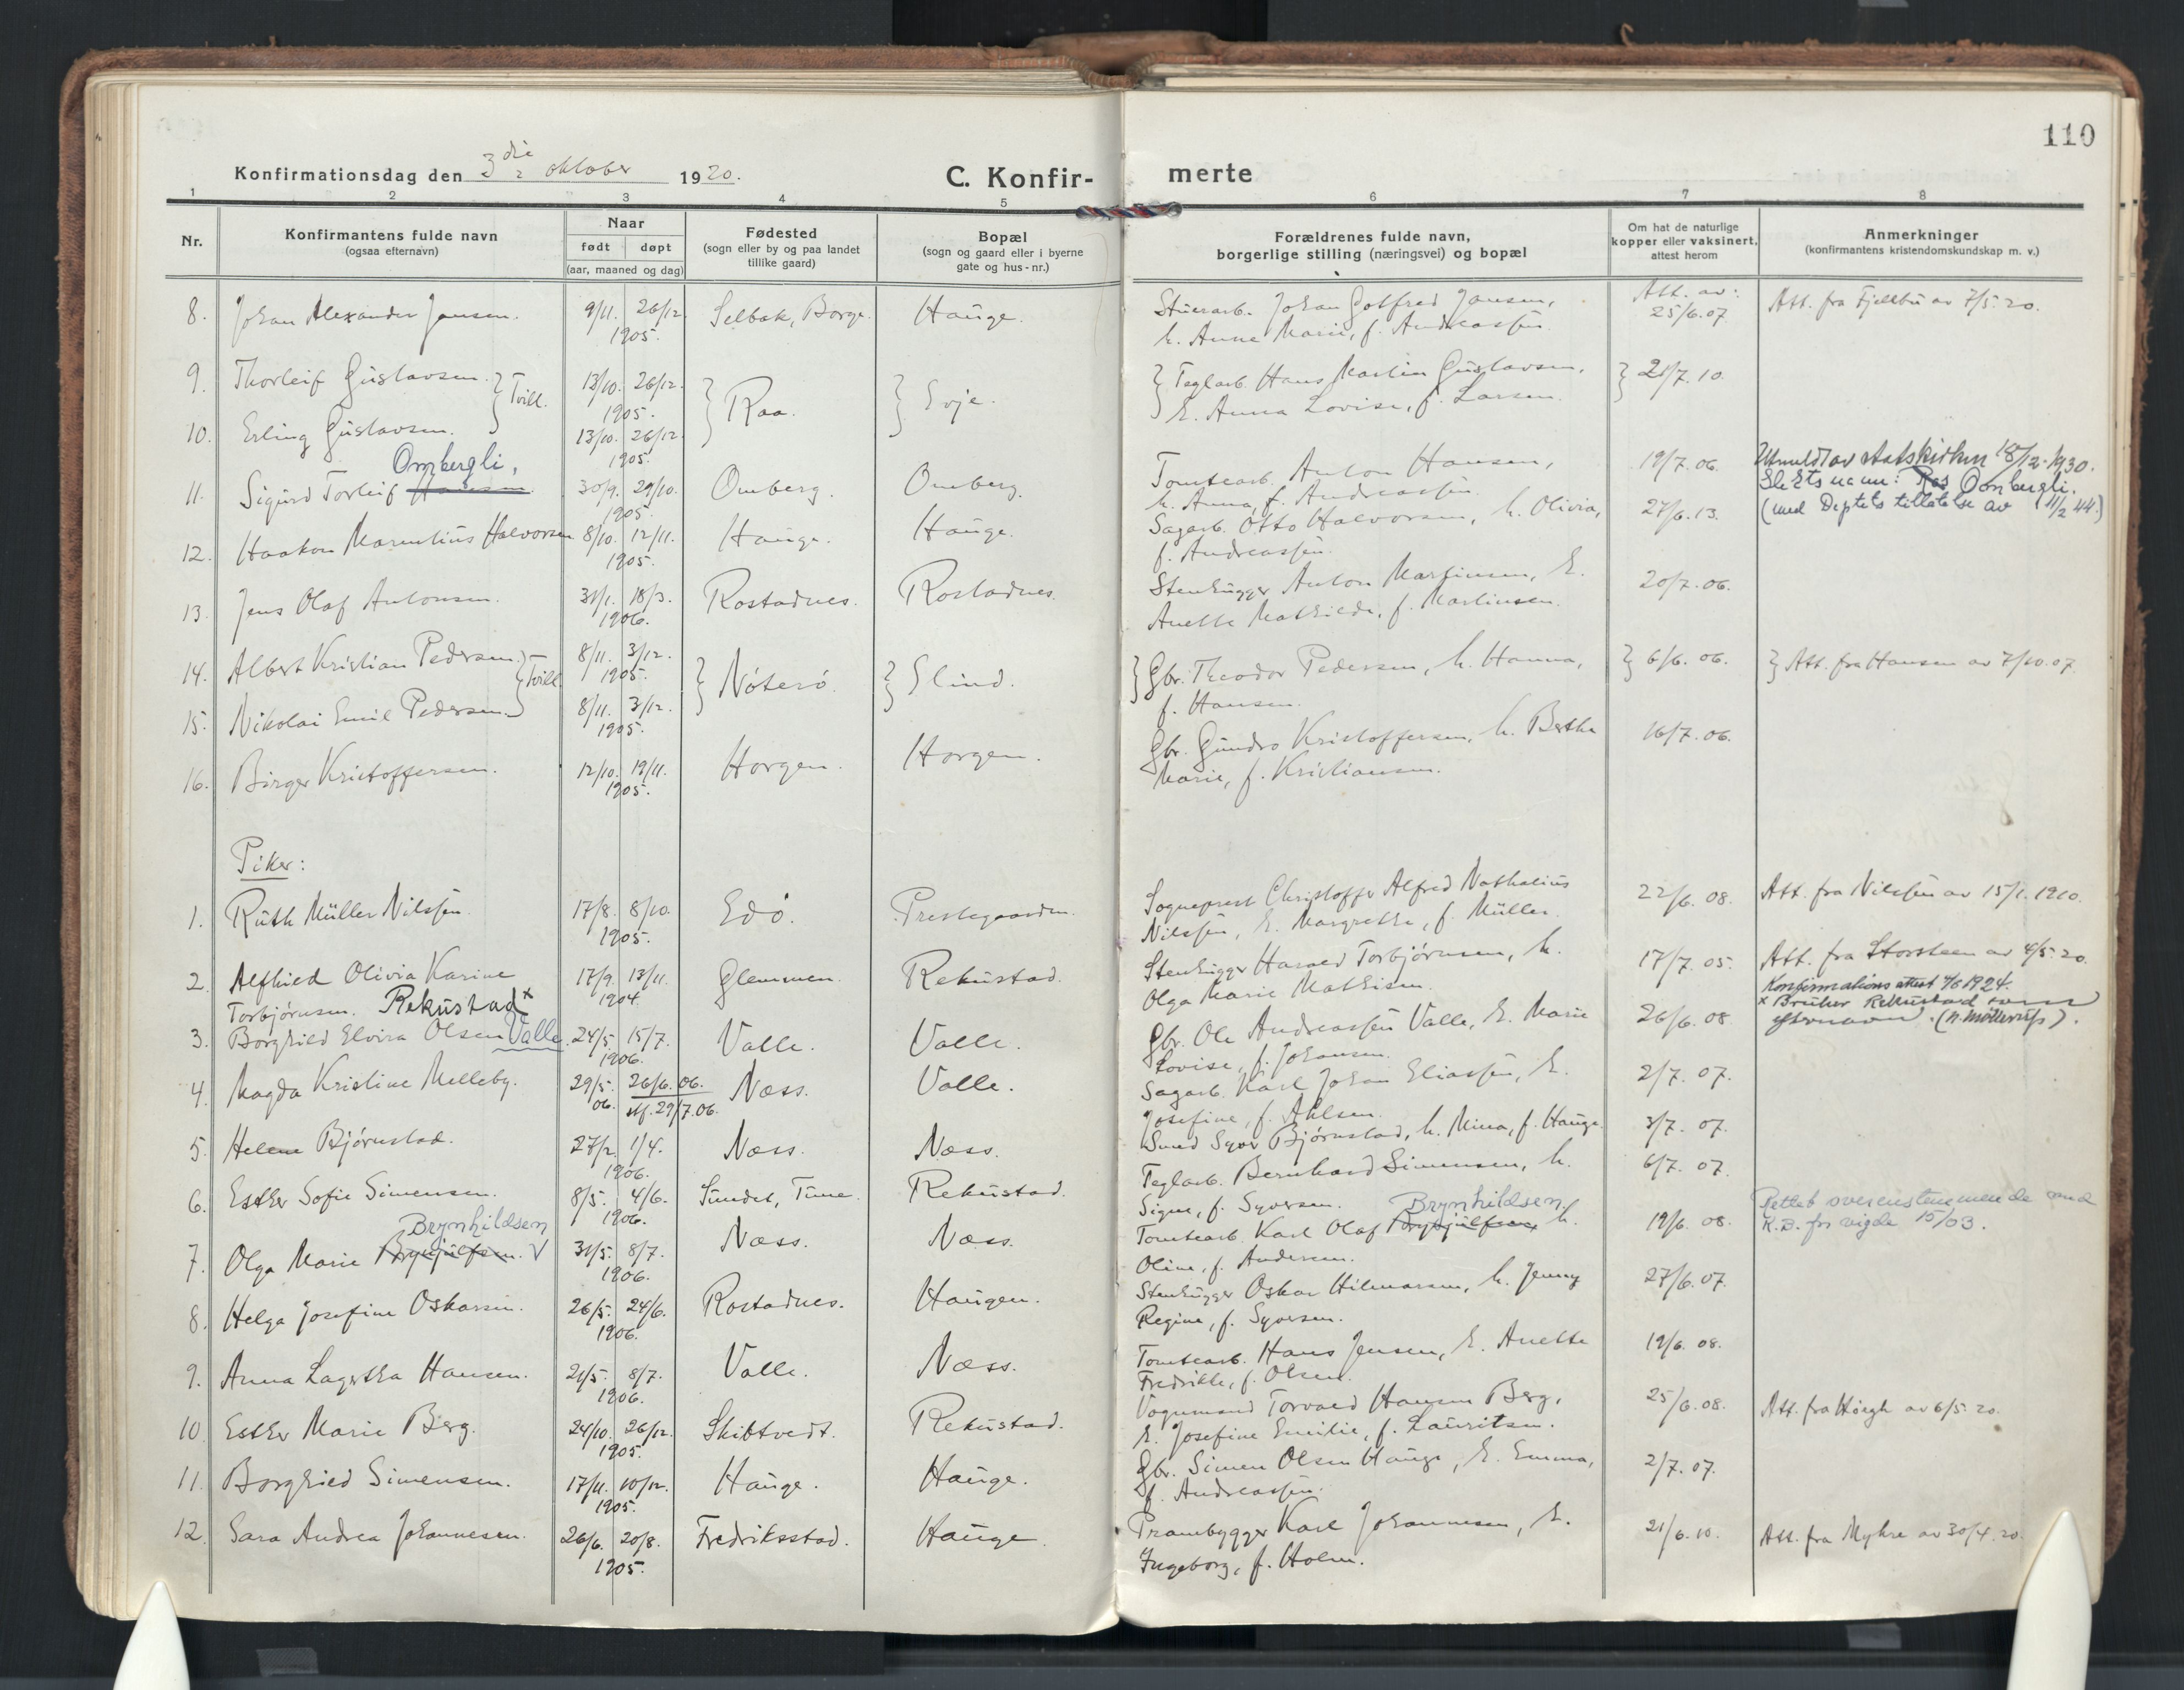 110
Konfirmationsdag den 3die oktober 1920.
C. Konfir-
merte
1 2 3 4 5 6 7 8
Nr.
Konfirmantens fulde navn
(ogsaa efternavn)
Naar
født døpt
(aar, maaned og dag)
Fødested
(sogn eller by og paa landet
tillike gaard)
Bopæl
(sogn og gaard eller i byerne
gate og hus-nr.)
Forældrenes fulde navn,
borgerlige stilling (næringsvei) og bopæl
Om hat de naturlige
kopper eller vaksinert,
attest herom
Anmerkninger
(konfirmantens kristendomskundskap m. v.)
8. Johan Alexander Jansen. 9/11. 26/12 1905. Selbak, Borge. Hauge. Stuerarb. Johan Gotfred Jansen, h. Anne Marie, f. Andreassen Att. av: 25/6.07. Att. fra Fjellbu av 7/5.20.
9. Thorleif Gustavsen. } Tvill. 13/10. 26/12. 1905. } Raa. } Evje. } Teglarb. Hans Martin Gustavsen, } 21/7.10.
10. Erling Gustavsen. 13/10. 26/12. 1905. h. Anna Lovise, f. Larsen.
Ombergli,
11. Sigurd Torleif Hansen 30/9. 29/10. 1905. Omberg. Omberg. Tomtearb. Anton Hansen, h. Anna, f. Andreassen. 19/7.06. Utmeldt av statskirken 18/12-1930.
Slektsnavn: Ombergli.
(med Deptets tillatelse av 11/2 44.)
12. Haakon Marentius Halvorsen 8/10. 12/11. 1905. Hauge. Hauge. Sagarb. Otto Halvorsen, h. Olivia, f. Andreassen. 27/6.13.
13. Jens Olaf Antonsen. 31/1. 18/3. 1906. Rostadnes. Rostadnes. Stenhugger Anton Martinsen, h. Anette Mathilde, f. Martinsen. 20/7.06.
14. Albert Kristian Pedersen. } Tvill. 8/11. 3/12. 1905. } Nøterø. } Elind. } Gbr. Theodor Pedersen, h. Hanna, } 6/6.06. } Att. fra Hansen av 7/10.07.
15. Nikolai Emil Pedersen. 8/11. 3/12. 1905. f. Hansen.
16. Birger Kristoffersen. 12/10. 19/11. 1905. Horgen. Horgen. Gbr. Gundro Kristoffersen, h. Berthe Marie, f. Kristiansen. 16/7.06.
Piker:
1. Ruth Müller Nilssen. 17/8. 8/10. 1905. Edø. Prestegaarden. Sogneprest Christoffer Alfred Nathalius Nilssen, h. Margrethe, f. Müller. 22/6.08. Att. fra Nilssen av 15/1.1910.
2. Alfhild Olivia Karine Torbjørnsen. Rekustad x 17/9. 13/11. 1904. Glemmen. Rekustad. Stenhugger Harald Torbjørnsen, h. Olga Marie Mathisen. 17/7.05. Att. fra Storsteen av 4/5.20.
Konfirmations attest 4/6 1924.
x Bruker Rekustad som
efternavn. (N. Møllerup).
3. Borghild Elvira Olsen Valle. 24/5. 15/7. 1906. Valle. Valle. Gbr. Ole Andreassen Valle, h. Marie Lovise, f. Johansen. 26/6.08
4. Magda Kristine Melleby. 29/5. 06. 26/6.06. stf. 29/7.06. Næss. Valle. Sagarb. Karl Johan Eliassen, h. Josefine, f. Ahlsen. 2/7.07.
5. Helene Bjørnstad. 27/2. 1/4. 1906. Næss. Næss. Smed Syver Bjørnstad, h. Mina, f. Hauge. 3/7.07.
6. Esther Sofie Simensen. 8/5. 4/6. 1906. Sundet, Tune. Rekustad. Teglarb. Bernhard Simensen, h. Signe, f. Syversen. 6/7.07.
Brynhildsen
7. Olga Marie Brynjulfsen. V 31/5. 8/7. 1906. Næss. Næss. Tomtearb. Karl Olaf Brynjulfsen, Brynhildsen h. Oline, f. Andersen. 19/6.08. Rettet overenstemmende med
K.B. for vigde 15/03.
8. Helga Josefine Oskarsen. 26/5. 24/6. 1906. Rostadnes. Haugen. Stenhugger Oskar Hilmarsen, h. Jenny Regine, f. Syversen. 27/6.07.
9. Anna Lagertha Hansen. 21/5. 8/7. 1906. Valle. Næss. Tomtearb. Hans Jensen, h. Anette Fredrikke, f. Olsen. 19/6.08.
10. Esther Marie Berg. 24/10. 26/12. 1905. Skibtvedt. Rekustad. Vognmand Torvald Hansen Berg, h. Josefine Emilie, f. Lauritsen. 25/6.08. Att. fra Høegh av 6/5.20.
11. Borghild Simensen. 17/11. 10/12. 1905. Hauge. Hauge. Gbr. Simen Olsen Hauge, h. Emma, f. Andreassen. 2/7.07.
12. Sara Andrea Johannesen. 26/6. 20/8. 1905. Fredriksstad. Hauge. Prambygger Karl Johannesen, h. Ingeborg, f. Holm. 21/6.10. Att. fra Myhre av 30/4.20.